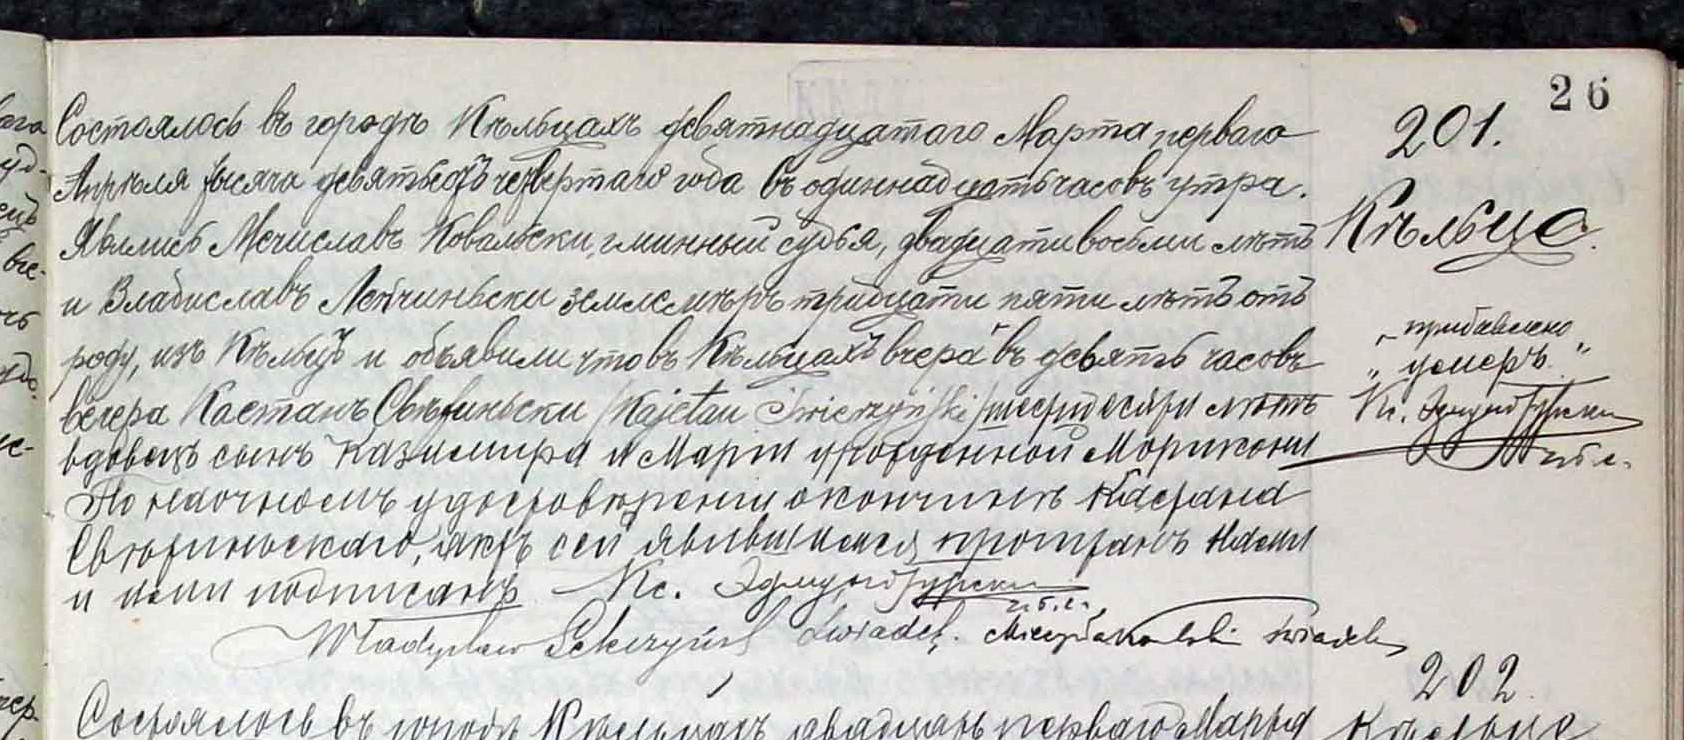 26
201.
Кѣльце
Состоялось въ городѣ Кѣльцахъ девятнадцатаго Марта перваго
Апрѣля тысяча девятьсотъ четвертаго года въ одиннадцать часовъ утра.
Явились Мечиславъ Ковальски, гминный судья, двадцати восьми лѣтъ
и Владиславъ землемѣръ тридцати пяти лѣтъ отъ
роду, изъ Кѣльцъ и объявили что въ Кѣльцахъ вчера " въ девять часовъ
вечера Каетанъ Свѣжиньски /Kajetan Świerzyński/ шестидесяти лѣтъ
вдовецъ сынъ Казимира и Маріи урожденнойМорикони
По наочномъ удостовѣреніи о кончинѣ Каетана
Свѣжиньскаго, актъ сей явившимся прочитанъ нами
и ими подписанъ. Кс. Эдмунд
Władysław świadek. Kowalski świadek
„прибавлено
„умеръ"
Кс. Эдмунд
202.
Состоялось въ городѣ Кѣльцахъ двадцать перваго Марта
Кѣльце